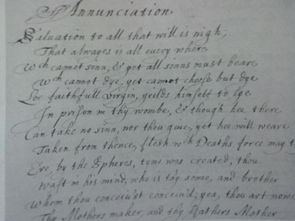 Annunciation.
Saluation to all that will is nigh,
That alwayes is all every where
Wch cannot sinn, & yet all sinns must beare,
Wch cannot dye, yet cannot chose but dye
Loe faithfull virgin, yeilds himself to lye
In prison in thy wombe, & though hee there
Can take no sinn, nor thou give, yet hee will weare
Taken from thence, flesh wch Deaths force may t
Ere, by the Spheres, tyme was created, thou
wast in his mind, who is thy sonne, and brother
whom thou conceiv'st conceiv'd; yea, thou art now
Thy Mothers maker, and thy Fathers Mother